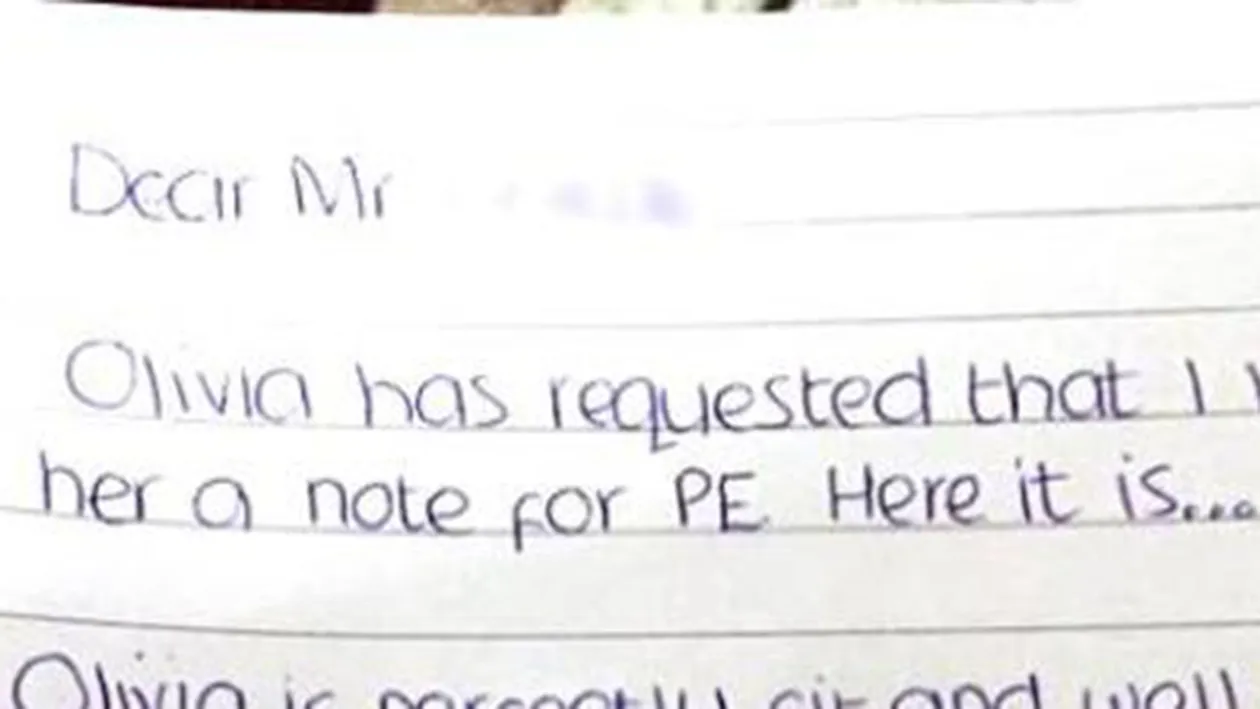 Dear Mr
Olivia has requested that I
her a note for PE. Here it is...
Olivia is perfectly fit and well